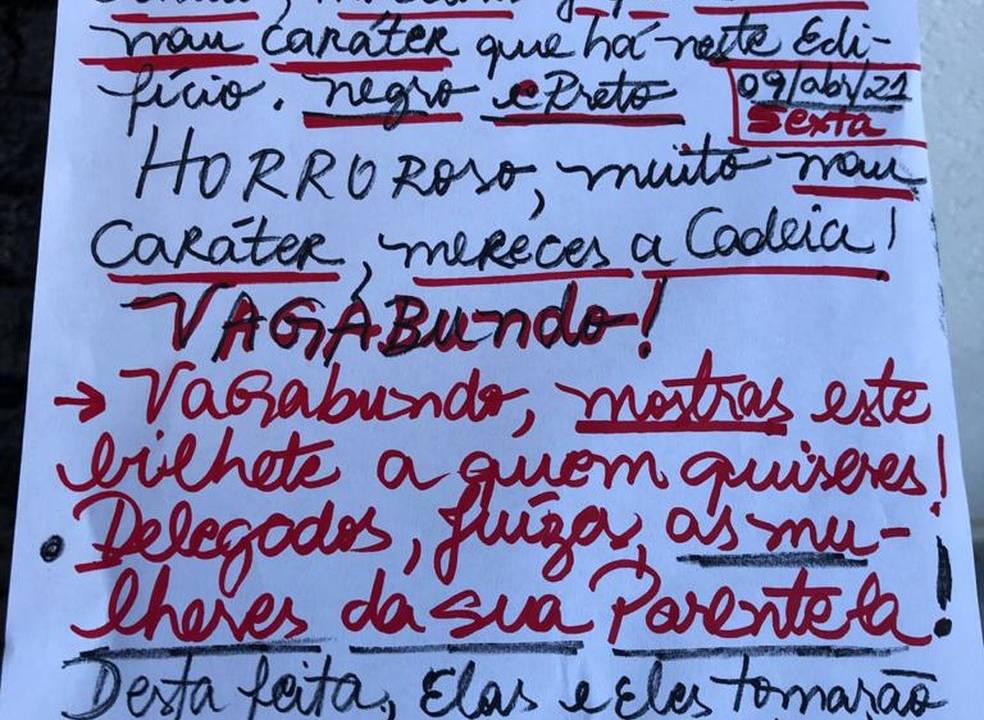 mau caráter que há neste Edi-
fício. negro e Preto
09/abr/21
Sexta
HORROROSO, muito mau
Caráter, mereces a Cadeia!
VAGABundo!
→ Vagabundo, mostras este
bilhete a quem quiseres!
• Delegados, juízes, as mu-
lheres da sua Parentela!
Desta feita, Elas e Eles tomarão